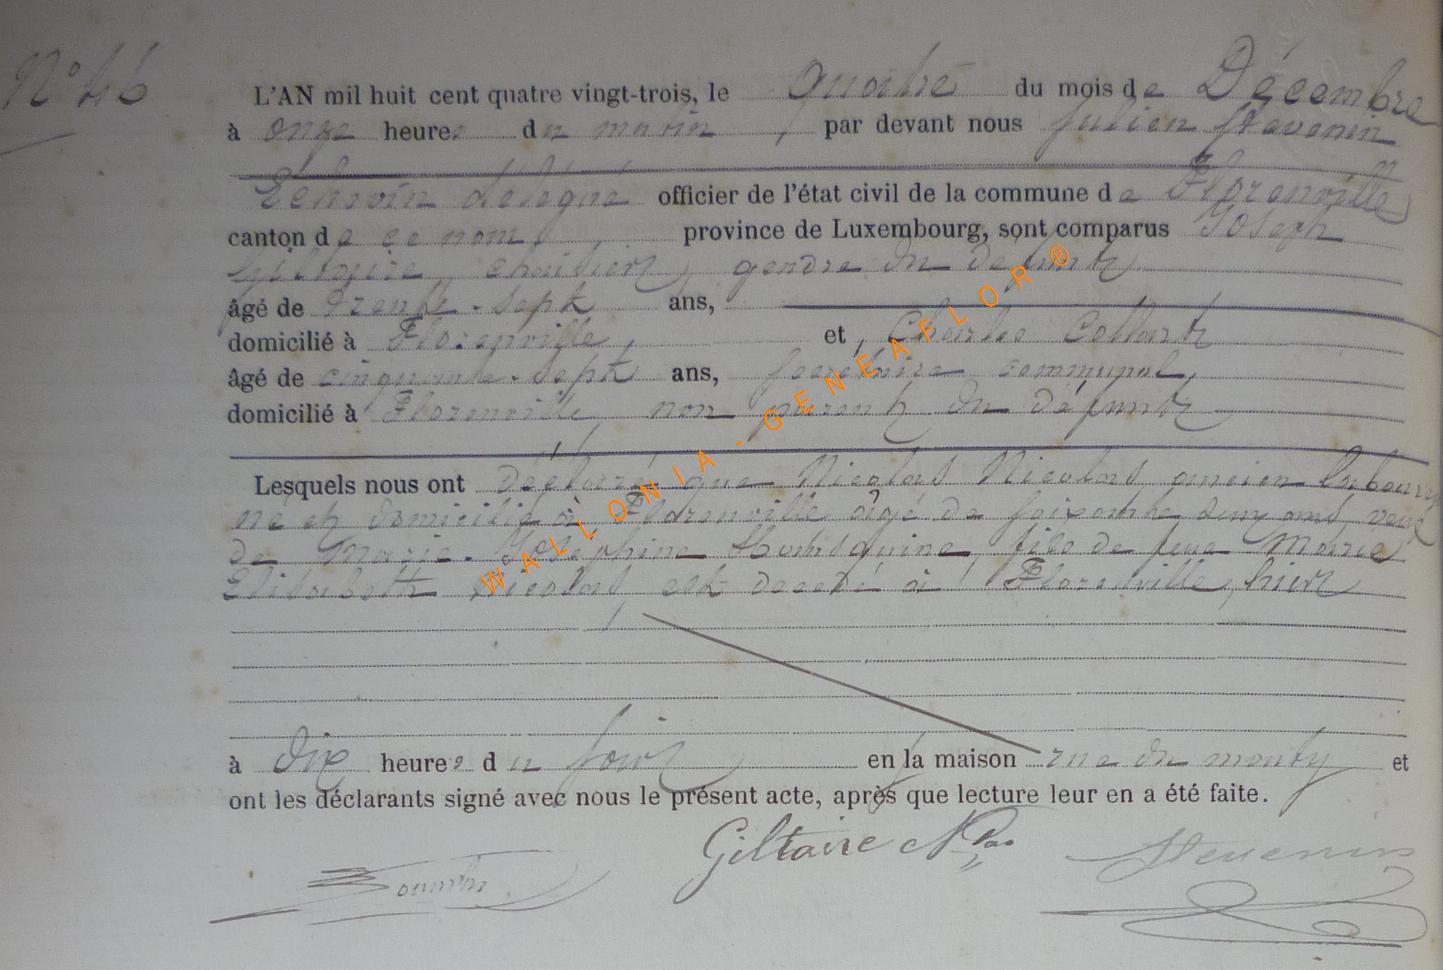 N° 46
L'AN mil huit cent quatre vingt-trois, le quatre du mois de Décembre
à onze heures du matin, par devant nous Julien Stevenin
Echevin délégué officier de l'état civil de la commune de Florenville
canton de ce nom, province de Luxembourg, sont comparus Joseph
Giltaire, gendre du défunt
âgé de trente-sept ans,
domicilié à Florenville, et, Charles
âgé de cinquante-sept ans, secrétaire communal,
domicilié à Florenville, non parent du défunt
Lesquels nous ont déclaré que Nicolas Nicolas, ancien laboureur
né et domicilié à Florenville âgé de soixante ans, veuf
de Marie-Josephine fils de feue Marie
Elisabeth Nicolas, est decedé à Florenville, hier
à dix heures du soir, en la maison rue du et
ont les déclarants signé avec nous le présent acte, après que lecture leur en a été faite.
Giltaire Stevenin
WALLONIA - GENEAFLOR ®